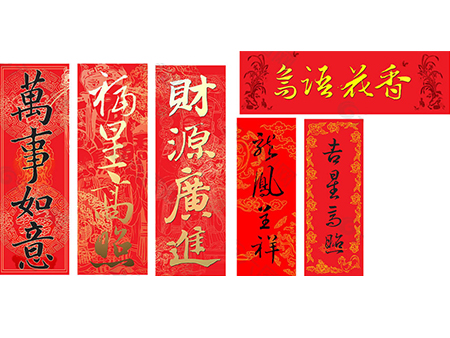 萬事如意
福星高照
財源廣進
鳥語花香
龍鳳呈祥
吉星高照